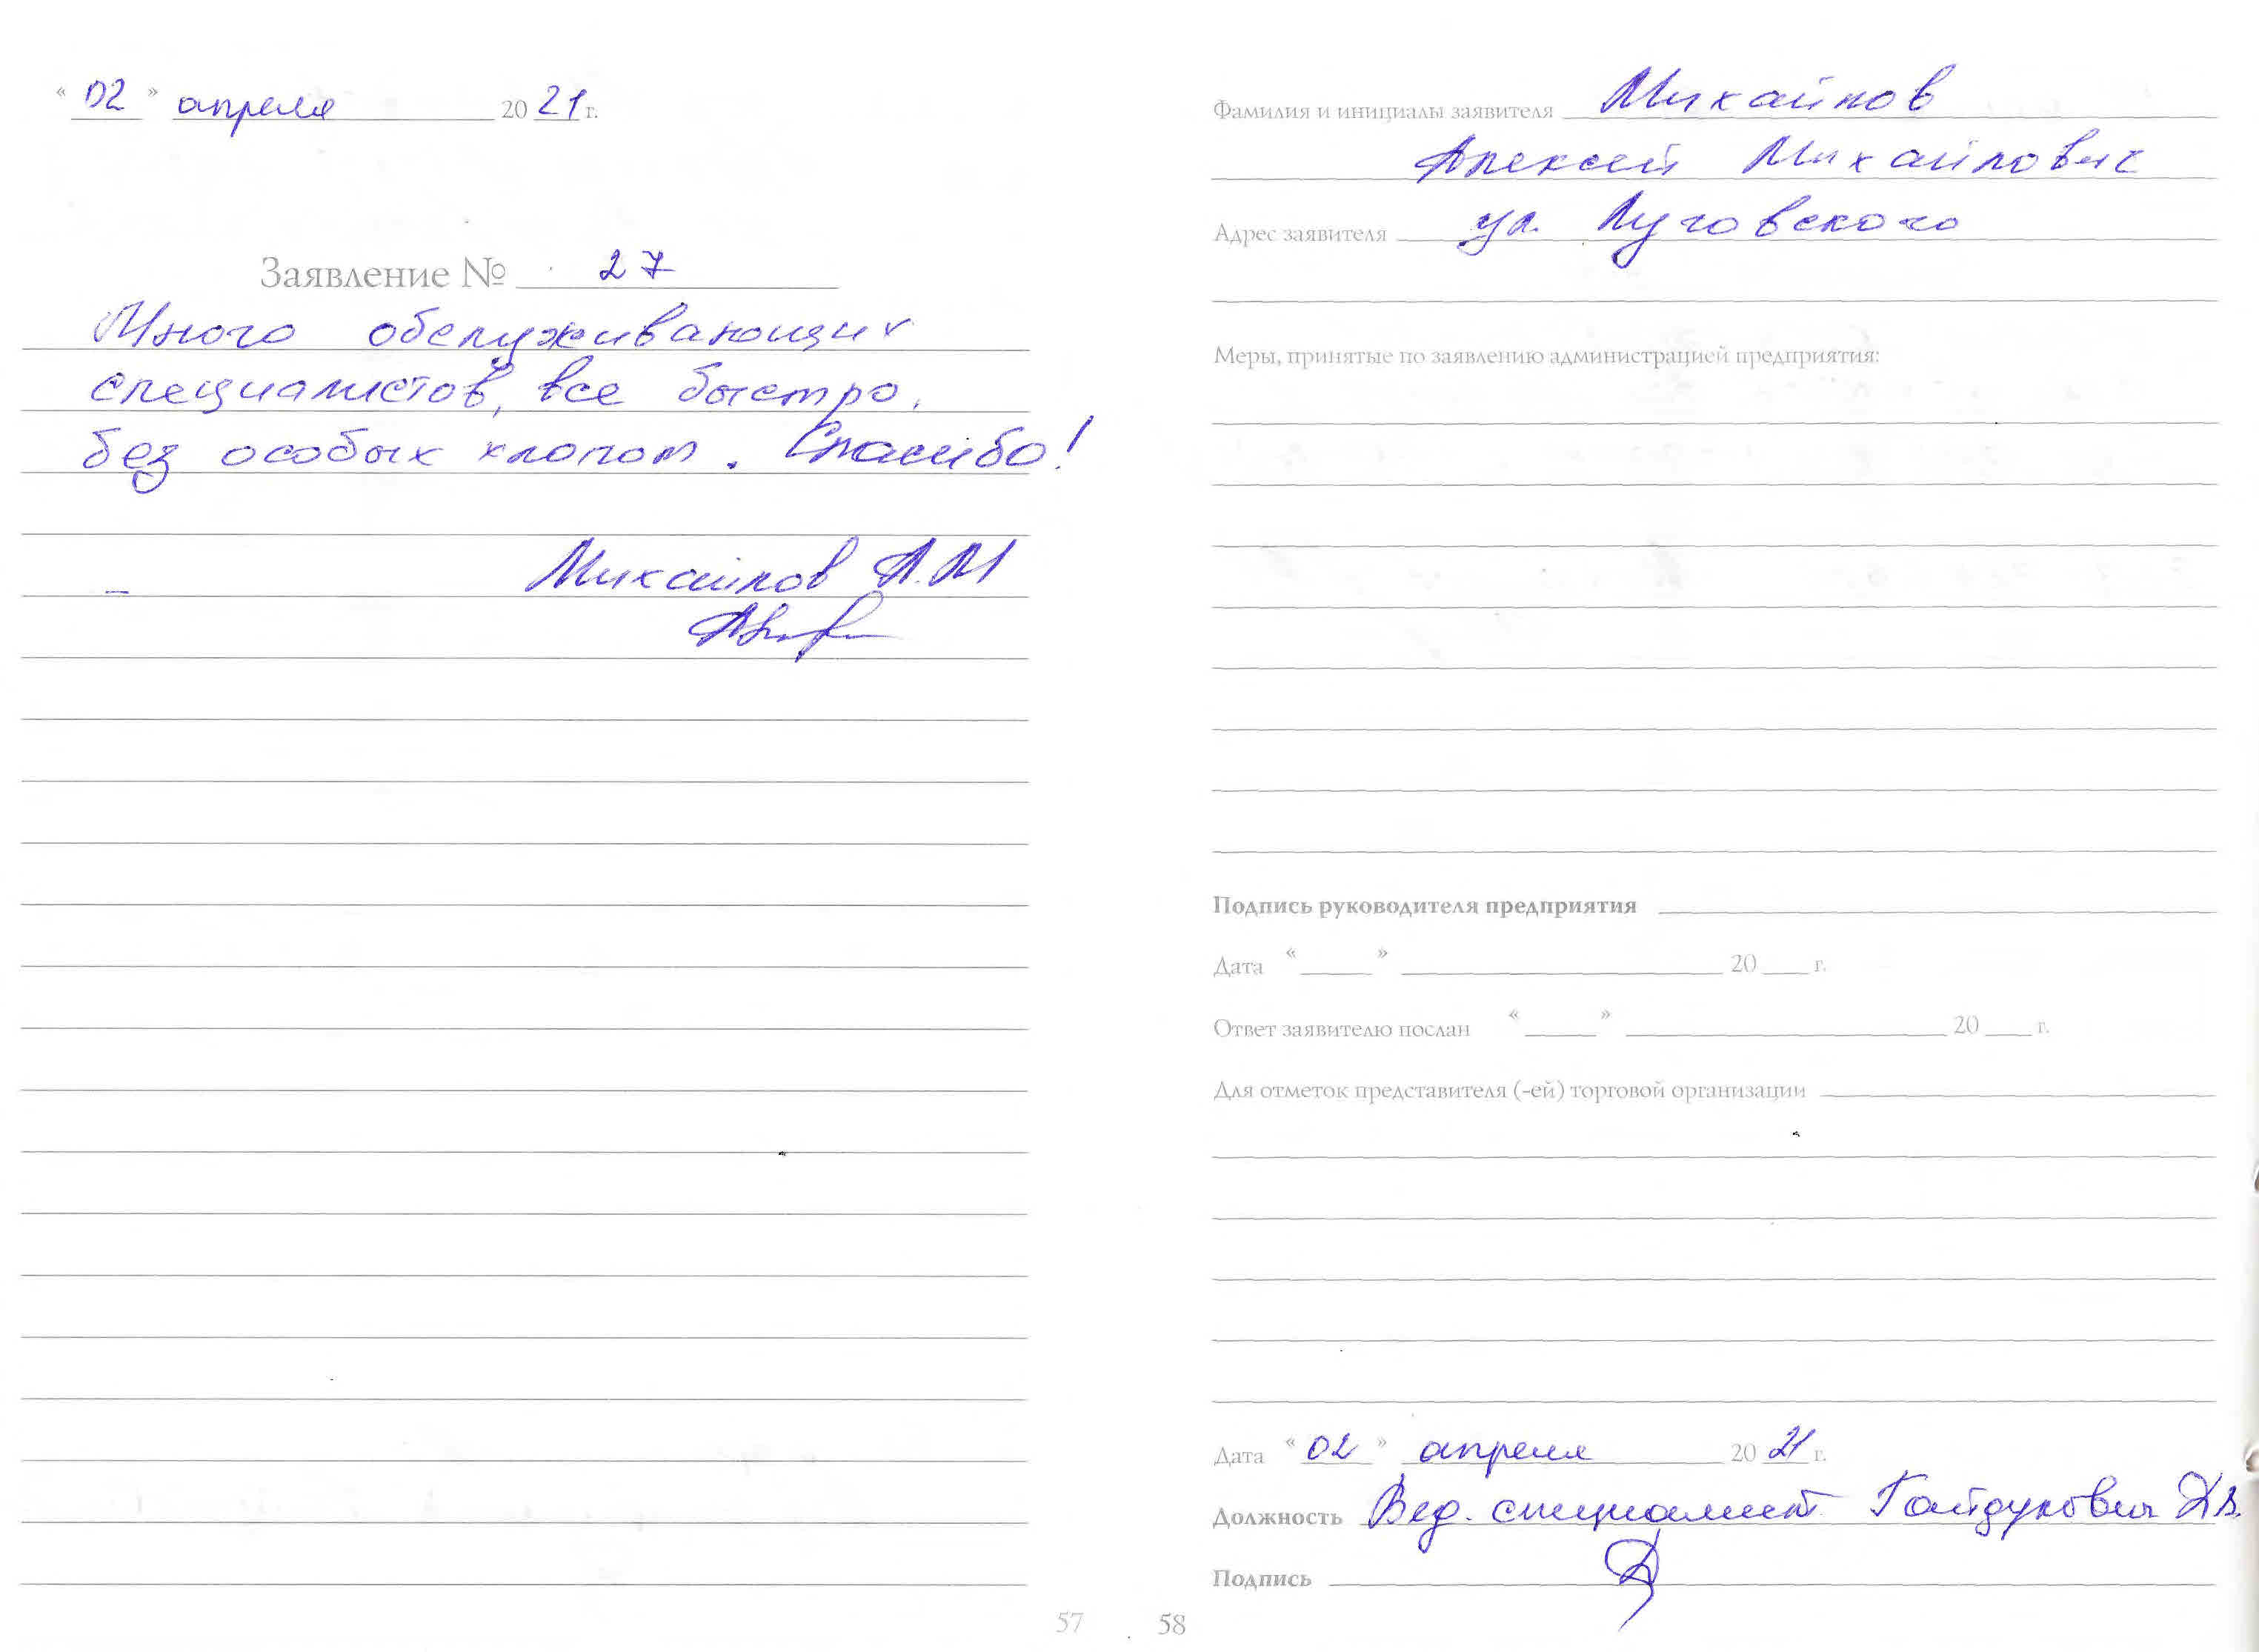 « 02 » апреля 2021 г.
Заявление № 27
Много обслуживающих
специалистов, все быстро,
без особых хлопот. Спасибо!
Михайлов А.М
57
Фамилия и инициалы заявителя Михайлов
Алексей Михайлович
Адрес заявителя ул. Луговского
Меры, принятые по заявлению администрацией предприятия:
Подпись руководителя предприятия
Дата « » 20 г.
Ответ заявителю послан « » 20 г.
Для отметок представителя (-ей) торговой организации
Дата « 02 » апреля 2021 г.
Должность Вед. специалист Гайдукович
Подпись
58